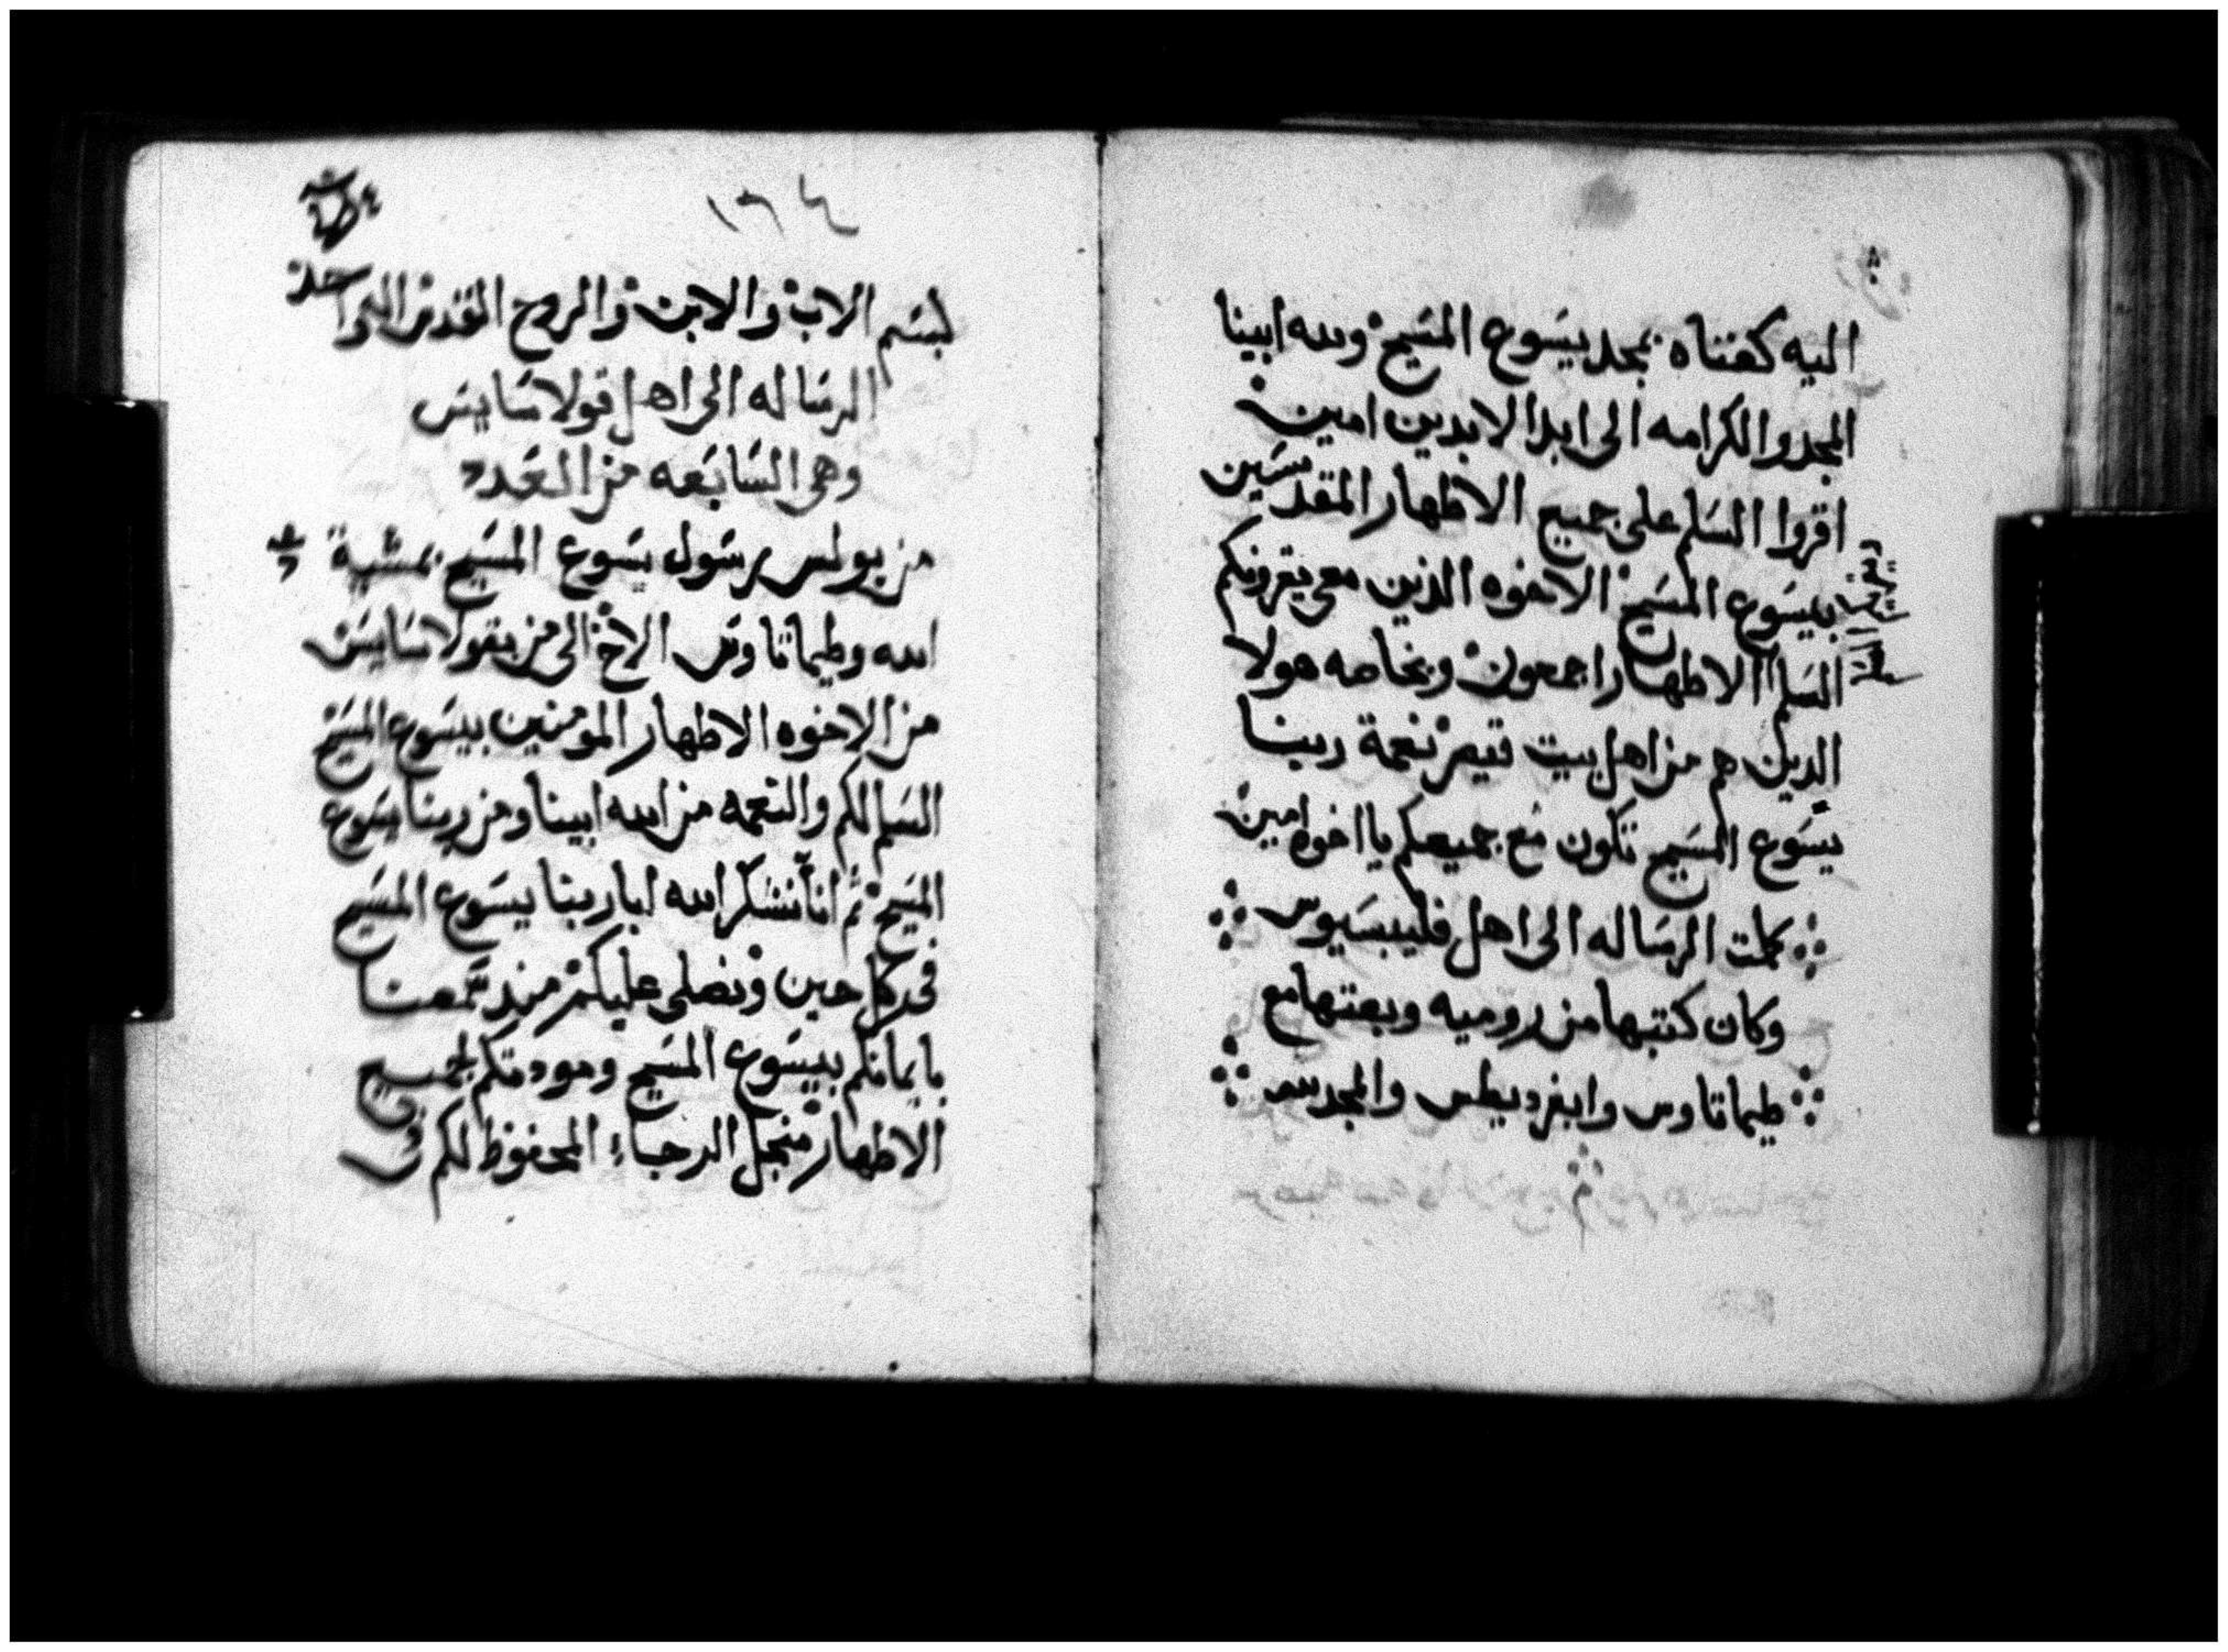 اليه كغناه بمجد يسوع المسيح ولله ابينا
المجد والكرامه الى ابد الابدين امين
اقروا السلم على جميع الاطهار المقدسين
بيسوع المسيح الاخوه الذين معى يقرونكم
السلم الاطهار اجمعون وبخاصه هولا
الدين هم من اهل بيت قيصر نعمة ربنا
يسوع المسيح تكون مع جميعكم يا اخوه امين
كملت الرساله الى اهل فليبسيوس
وكان كتبها من روميه وبعتها مع
طيماتاوس وابفرديطس والمجد لله
بسم الاب والابن والروح القدس الاله الواحد
الرساله الى اهل قولاسايس
وهى السابعه من العدد
من بولس رسول يسوع المسيح بمشية
الله وطيماتاوس الاخ الى من بقولاسايس
من الاخوه الاطهار المومنين بيسوع المسيح
السلم لكم والنعمه من الله ابينا ومن ربنا يسوع
المسيح ثم انا نشكر الله ابا ربنا يسوع المسيح
فى كل حين ونصلى عليكم منذ سمعنا
بايمانكم بيسوع المسيح ومودتكم لجميع
الاطهار منجل الرجاء المحفوظ لكم فى